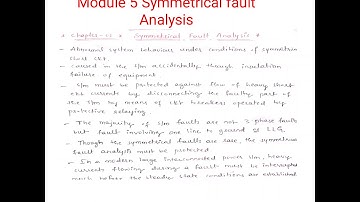 Module 5 Symmetrical fault
Analysis
* Chapter-11 * Symmetrical Fault Analysis *
- Abnormal system behaviour under conditions of symmetrical
short ckt.
- caused in the s/m accidently through insulation
failure of equipment
- s/m must be protected against flow of heavy short
ckt currents by disconnecting the faulty part of
the s/m by means of ckt breakers operated by
protective relaying.
- The majority of s/m faults are not 3 phase faults
but fault involving one line to ground or LLG.
- Though the symmetrical faults are rare, the symmetrical
fault analysis must be protected.
- In a modern large interconnected power s/m, heavy
currents flowing during a fault must be interrupted
much before the steady state conditions are established